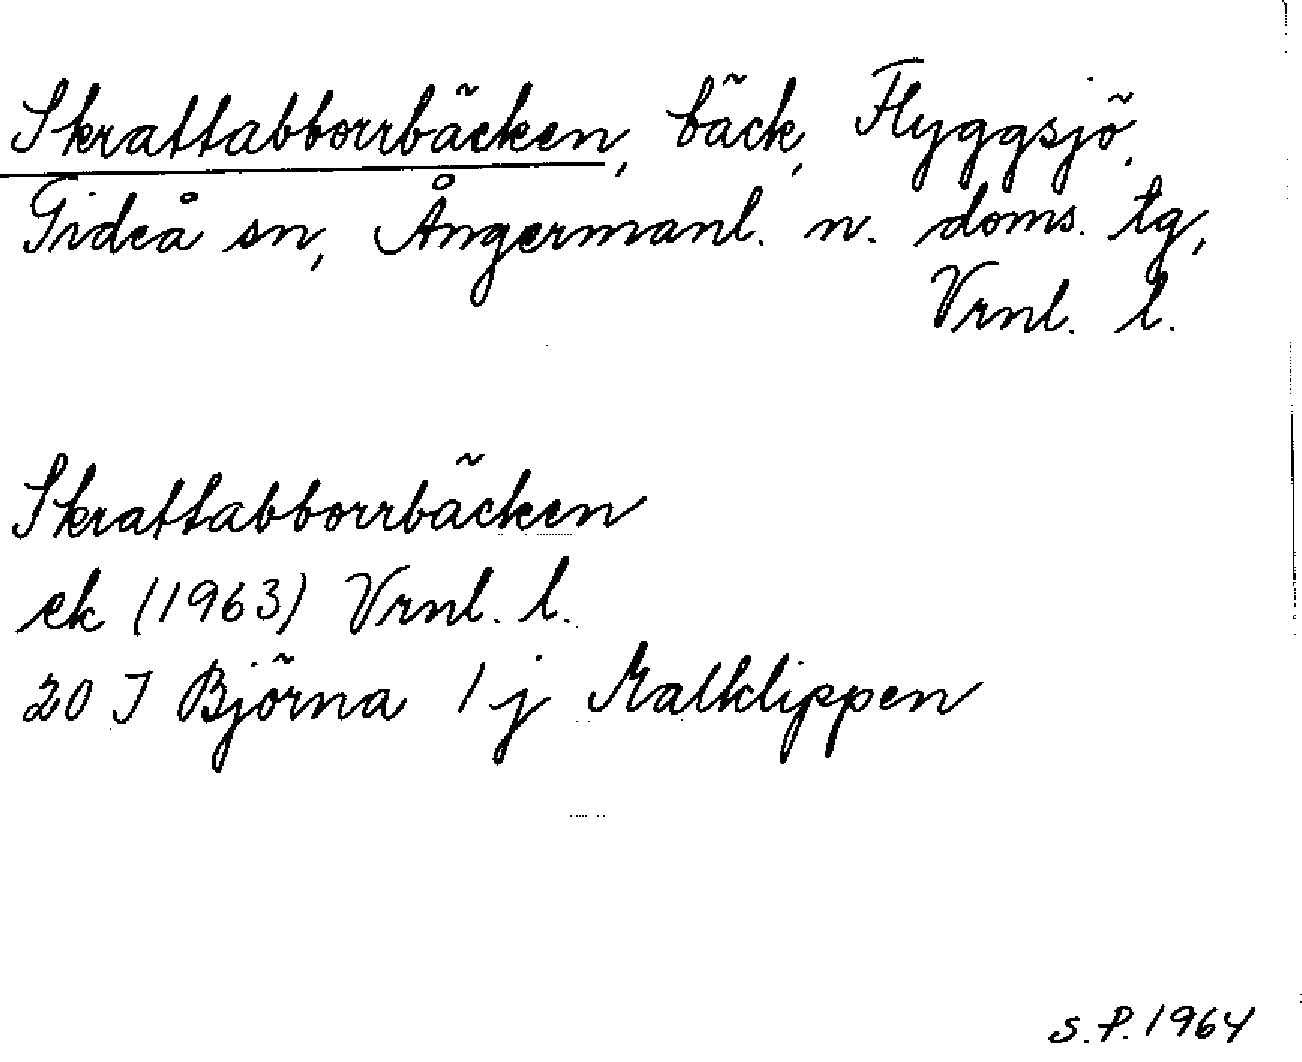 Skrattabborrbäcken, bäck, Flyggsjö,
Gideå sn, Ångermanl. n. doms. tg,
Vrnl. l.
Skrattabborrbäcken
ek (1963) Vrnl. l.
20 J Björna 1 j Malklippen
S.P. 1964